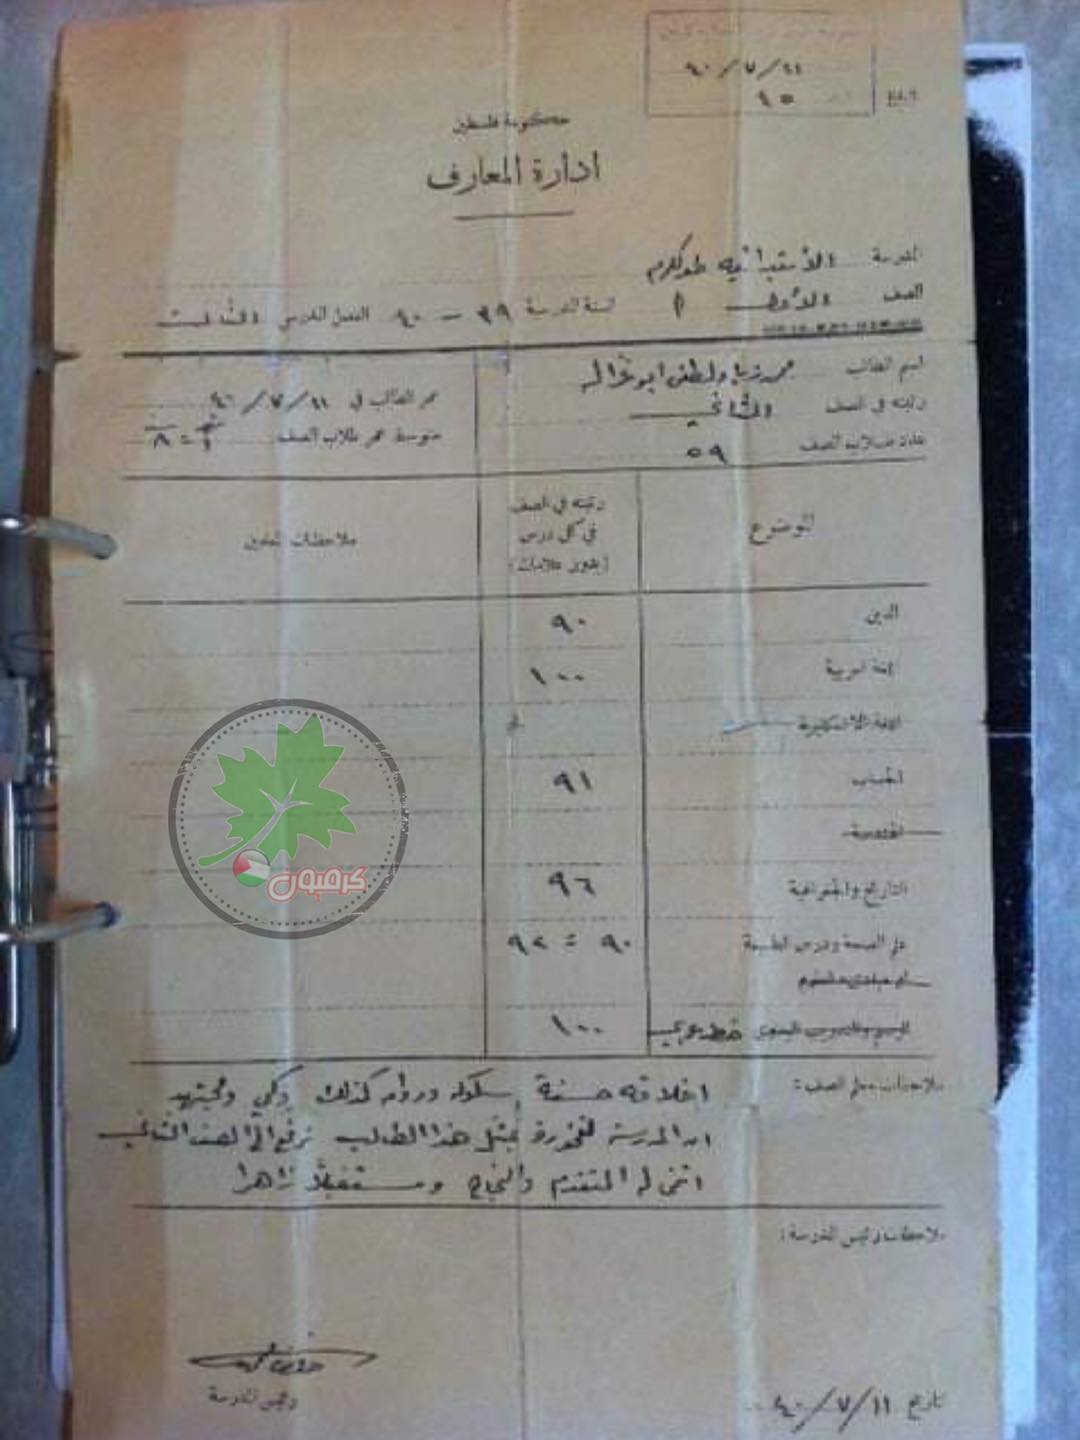 ٤٠/٧/١١
٩٥
حكومة فلسطين
ادارة المعارف
المدرسة الأبتدائيه طولكرم
الصف الأول أ السنة المدرسية ٣٩ - ٤٠ الفصل المدرسي الثالث
اسم الطالب محمد زياد لطفي ابو غزاله
رتبته في الصف الثاني
عدد طلاب الصف ٥٩
عمر الطالب في ١١/٧/٤٠
متوسط عمر طلاب الصف
الموضوع
رتبته في الصف
في كل درس
(بدون علامات)
ملاحظات المعلمين
الدين ٩٠
اللغة العربية ١٠٠
اللغة الانكليزية
الحساب ٩١
الهندسة
التاريخ والجغرافية ٩٦
علم الصحة ودرس الطبيعة ٩٠ = ٩٢
او مبادئ العلوم
الرسم والتدريب اليدوي خط عربي ١٠٠
ملاحظات معلم الصف:
اخلاقه حسنة سلوكه ودوامه كذلك ذكي ومجتهد
ان المدرسة لفخورة بمثل هذا الطالب ترفع الى الصف الثاني
اتمنى له التقدم والنجاح ومستقبلاً زاهرا
ملاحظات رئيس المدرسة:
رئيس المدرسة
تاريخ ١١/٧/٤٠
كرمبون